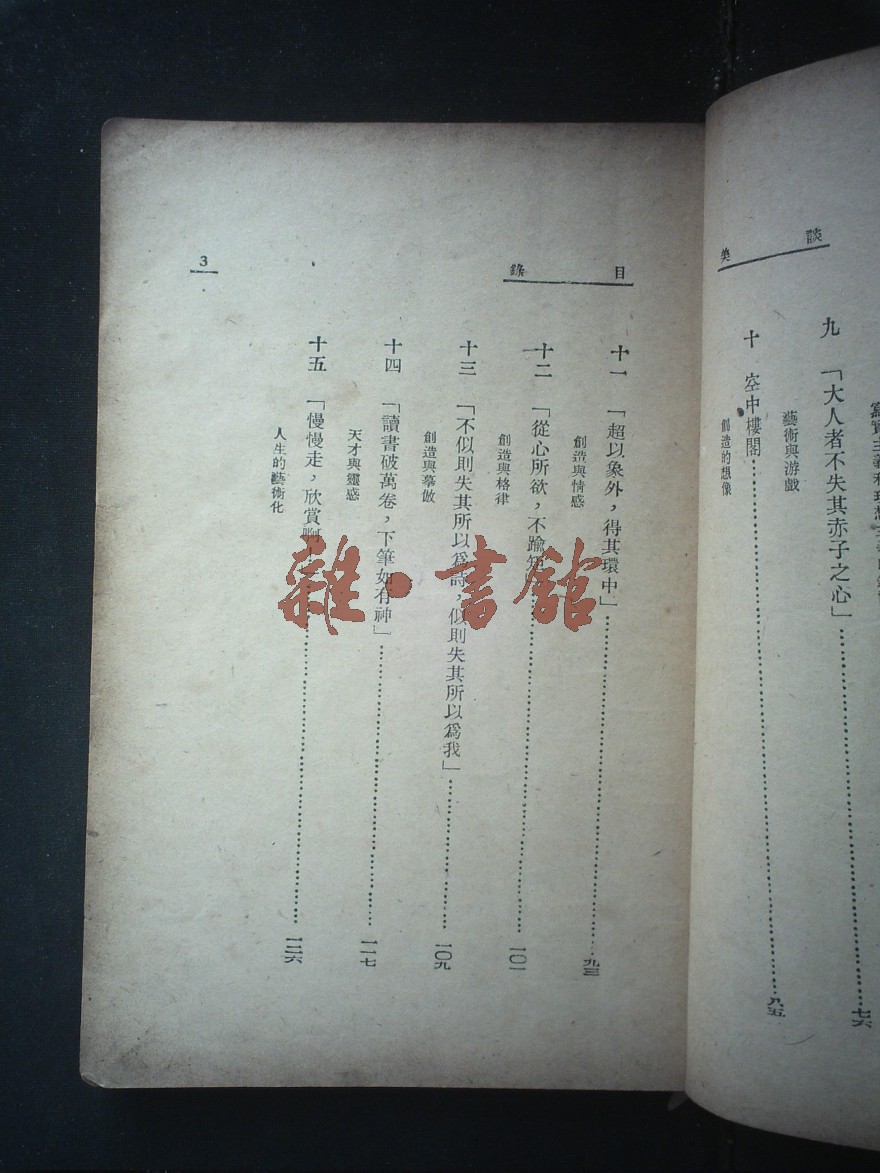 談美
寫實主義和理想主義
九 「大人者不失其赤子之心」……七六
藝術與游戲
十 空中樓閣……八五
創造的想像
目錄
十一 「超以象外，得其環中」……九三
創造與情感
十二 「從心所欲，不踰矩……一〇一
創造與格律
十三 「不似則失其所以爲詩，似則失其所以爲我」……一〇九
創造與摹倣
十四 「讀書破萬卷，下筆如有神」……一一七
天才與靈感
十五 「慢慢走，欣賞啊……一二六
人生的藝術化
3
雜·書館